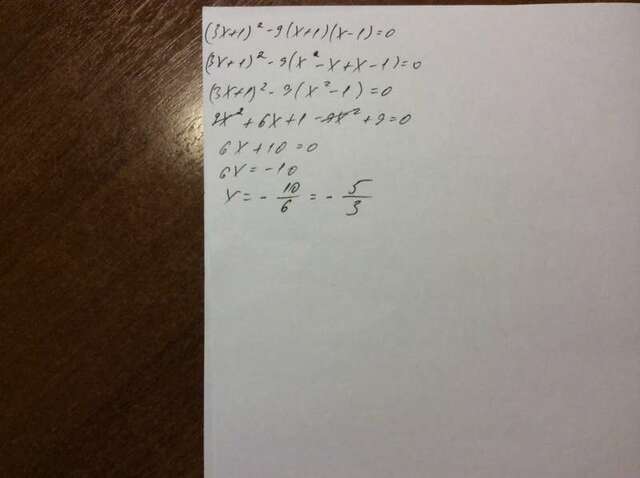 (3x+1)² - 9(x+1)(x-1)=0
(3x+1)² - 9(x²-x+x-1)=0
(3x+1)² - 9(x²-1)=0
9x²+6x+1-9x²+9=0
6x+10=0
6x=-10
x=-10/6=-5/3